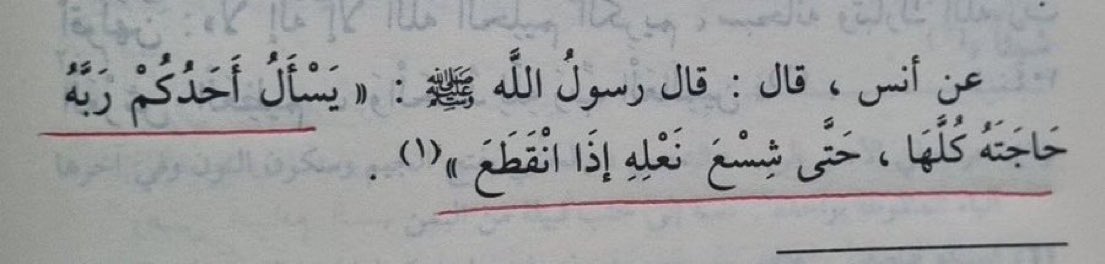 عن أنس ، قال : قال رسولُ اللَّه ﷺ : « يَسْأَلُ أَحَدُكُمْ رَبَّهُ
حَاجَتَهُ كُلَّهَا ، حَتَّى شِسْعَ نَعْلِهِ إِذَا انْقَطَعَ »(١) .